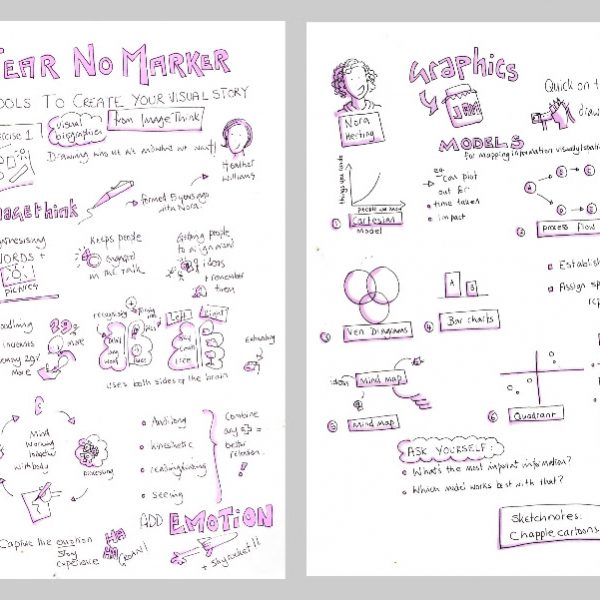 FEAR NO MARKER
TOOLS TO CREATE YOUR VISUAL STORY
Exercise 1
visual biographies
from ImageThink
Heather
Williams
ImageThink
formed 8 years ago
with Nora.
Synthesising
WORDS +
pictures
Keeps people
engaged
in the talk
Getting people
to align around
ideas
+ remember
them
Doodling
increases
memory 29%
More
more
Left
Right
uses both sides of the brain
Mind
working
together
with body
processing
Auditory
kinesthetic
reading/writing
seeing
Combine
any
=
better
retention
!
ADD EMOTION
Capture the emotion
story
experience
HA
HA
GROAN!
+ skyrocket it
Graphics
JAM
Quick on t
draw
Nora
Herting
MODELS
for mapping information visually
things you can do
people we need
1 Cartesian
Model
eg.
Can plot
out for
time taken
impact
A
B
C
D
E
2 process flow
3 Ven Diagrams
A
B
4 Bar charts
Establis
Assign sp
ideas
Mind map
5 Mind map
6 Quadrant
ASK YOURSELF:
What's the most imprint information?
Which model works best with that?
Sketchnotes:
Chapplecartoons.